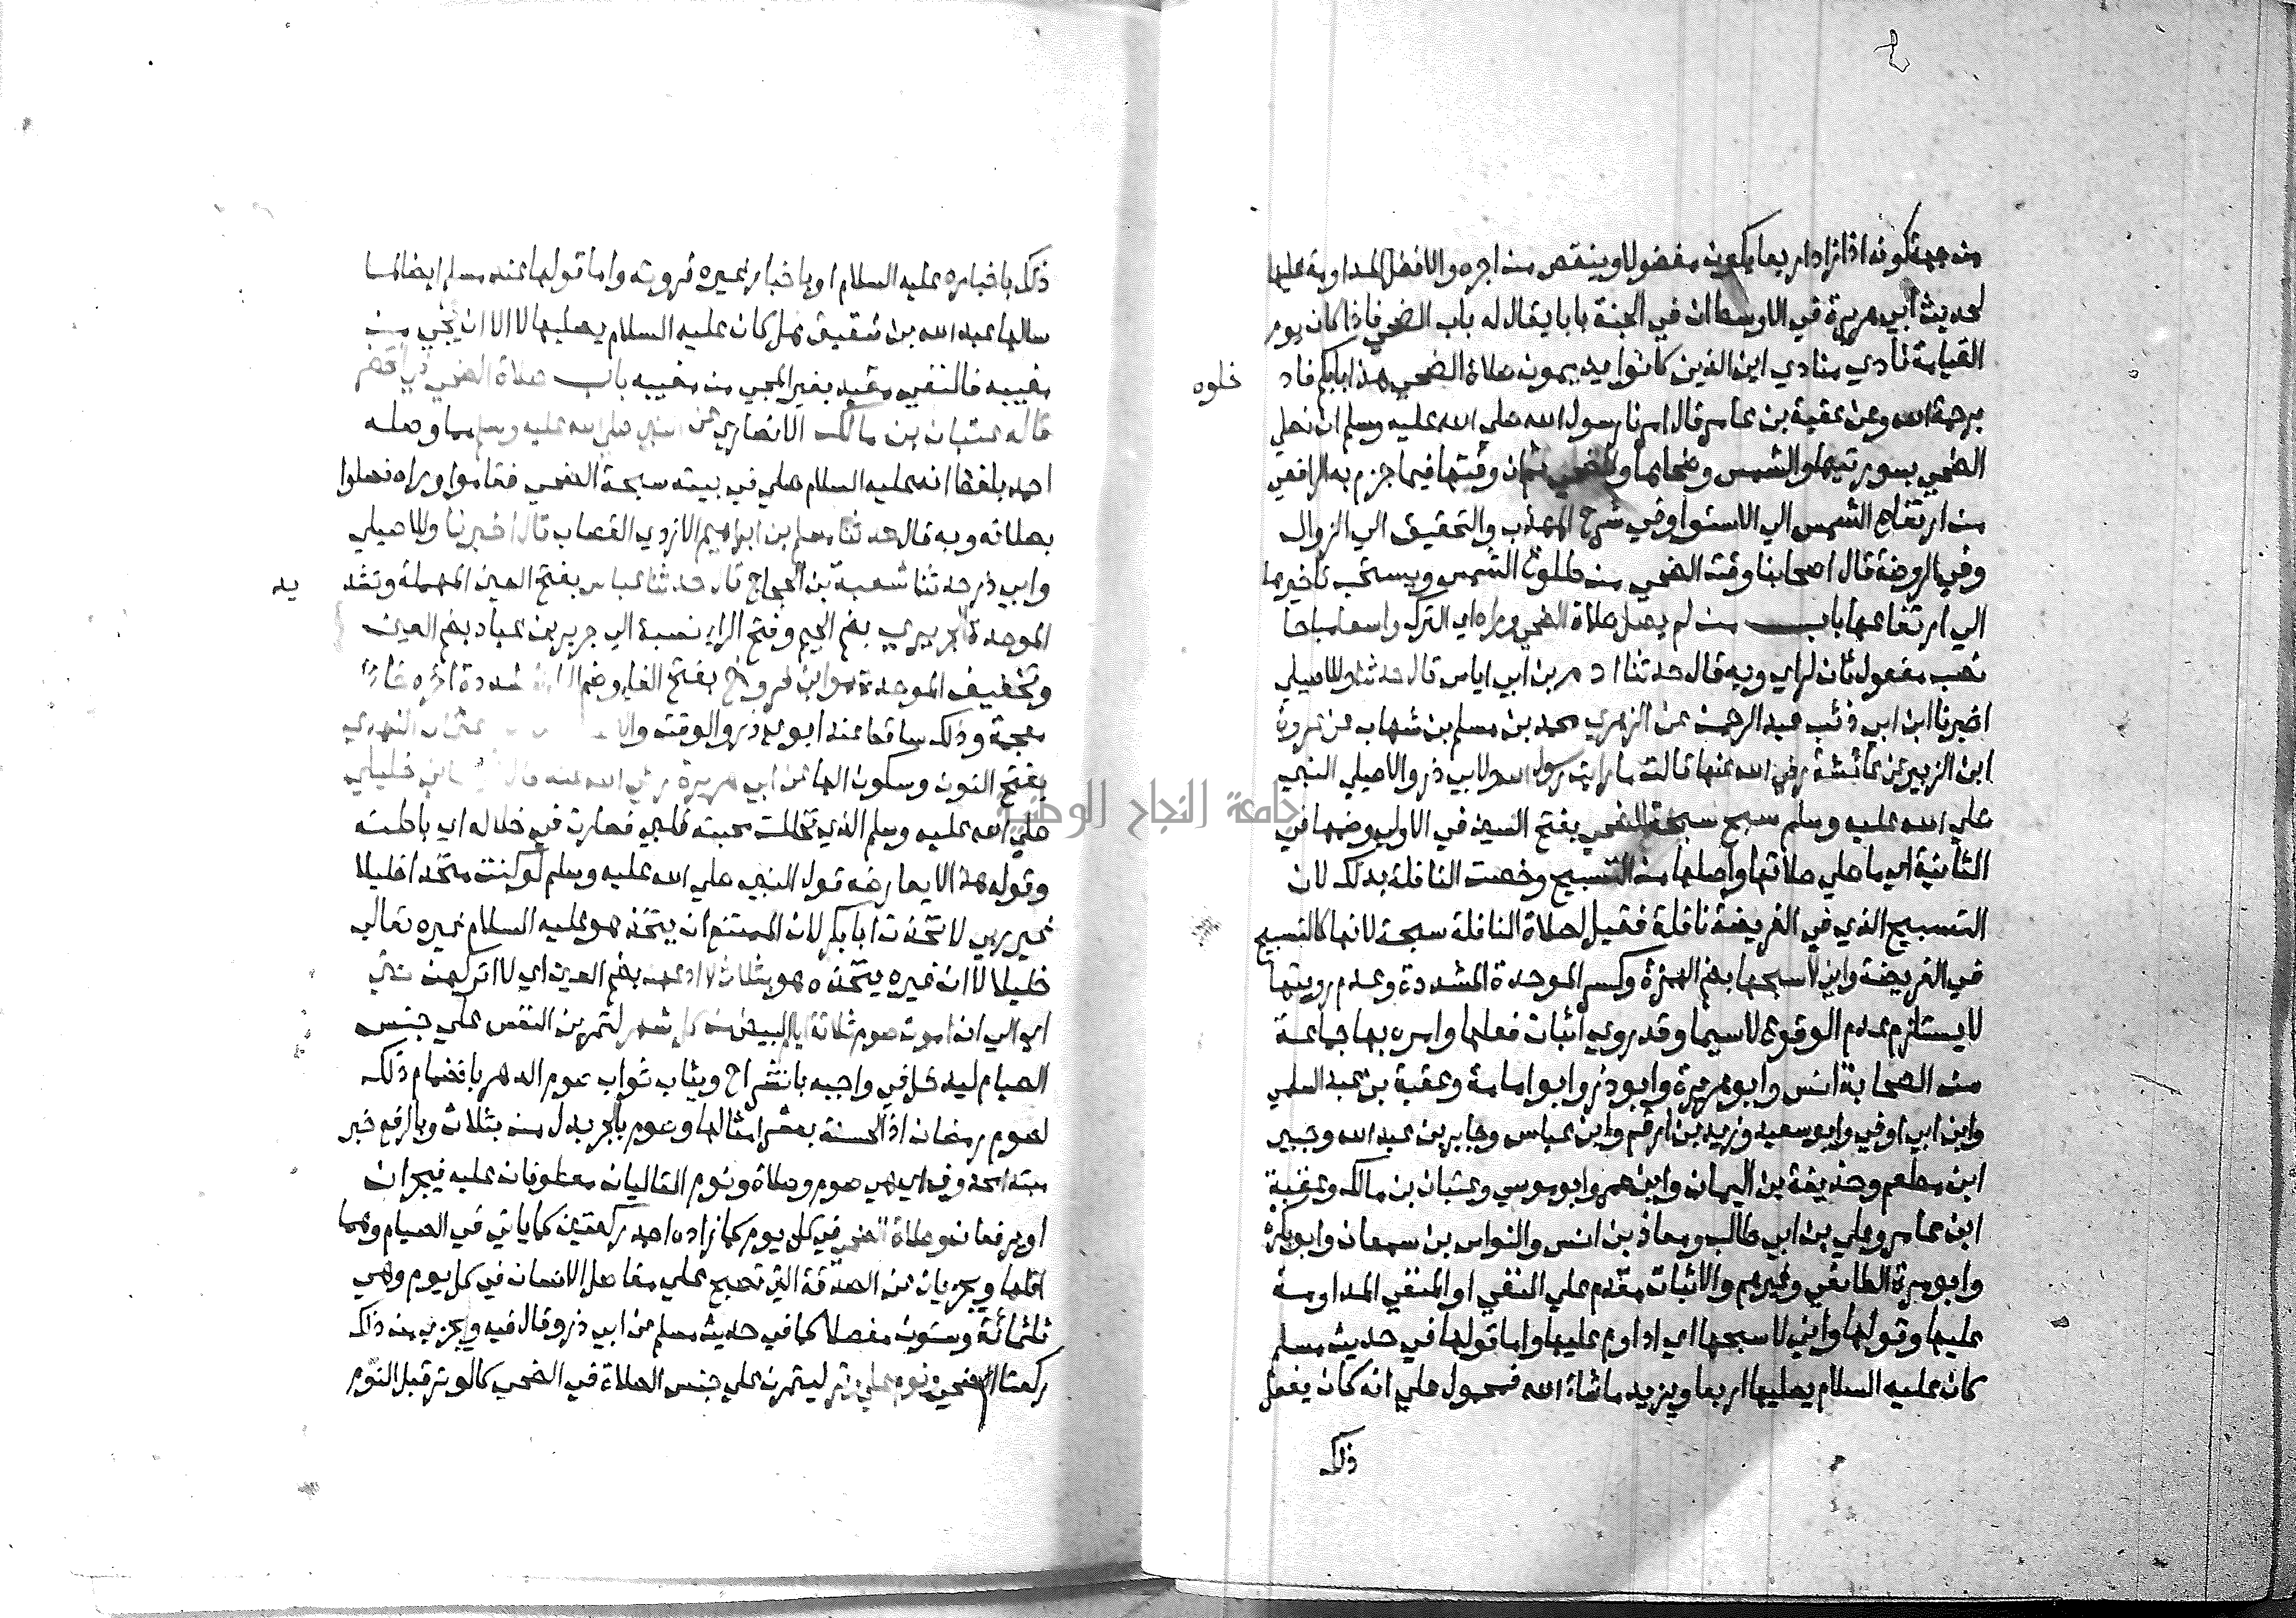 من جهة كونه اذا زاد اربعا يكون مفضولا وينقص من اجره والافضل المداومة عليها
لحديث ابي هريرة في الاوسط ان في الجنة بابا يقال له باب الضحي فاذا كان يوم
القيامة نادي منادي اين الذين كانوا يديمون صلاة الضحي هذا بابكم فاد
خلوه
برحمة الله وعن عقبة بن عامر قال امرنا رسول الله صلي الله عليه وسلم ان نصلي
الضحي بسورتيها والشمس وضحاها والضحي ثم ان وقتها فيما جزم به الرافعي
من ارتفاع الشمس الي الاستوا وفي شرح المهذب والتحقيق الي الزوال
وفي الروضة قال اصحابنا وقت الضحي من طلوع الشمس ويستحب تاخيرها
الي ارتفاعها باب من لم يصل صلاة الضحي وراه اي الترك واسعا مباحا
نصب مفعول ثان لراي وبه قال حدثنا ادم بن ابي اياس قال حدثنا وللاصيلي
اخبرنا ابن ابي ذئب عبد الرحمن عن الزهري محمد بن مسلم بن شهاب عن عروة
ابن الزبير عن عائشة رضي الله عنها قالت ما رايت رسول الله ولابي ذر والاصيلي النبي
صلي الله عليه وسلم سبح سبحة الضحي بفتح السين في الاولي وضمها في
الثانية اي ما صلي صلاتها واصلها من التسبيح وخصت النافلة بذلك لان
التسبيح الذي في الفريضة نافلة فقيل لصلاة النافلة سبحة لانها كالتسبيح
في الفريضة واني لاسبحها بضم الهمزة وكسر الموحدة المشددة وعدم رويتها
لا يستلزم عدم الوقوع لاسيما وقد روي اثبات فعلها وامره بها جماعة
من الصحابة انس وابو هريرة وابو ذر وابو امامة وعقبة بن عبد السلمي
وابن ابي اوفي وابو سعيد وزيد بن ارقم وابن عباس وجابر بن عبد الله وجبير
ابن مطعم وحذيفة بن اليمان وابن عمر وابو موسي وعتبان بن مالك وعقبة
ابن عامر وعلي بن ابي طالب ومعاذ بن انس والنواس بن سمعان وابو بكرة
وابو مرة الطائفي وغيرهم والاثبات مقدم علي النفي او المنفي المداومة
عليها وقولها واني لاسبحها اي اداوم عليها واما قولها في حديث مسلم
كان عليه السلام يصليها اربعا ويزيد ما شاء الله فمحمول علي انه كان يفعل
ذلك
ذلك باخباره عليه السلام او باخبار غيره فروته واما قولها عند مسلم ايضا لما
سالها عبد الله بن شقيق هل كان عليه السلام يصليها لا الا ان يجي من
مغيبه فالنفي مقيد بغير المجي من مغيبه باب صلاة الضحي في الحضر
قاله عتبان بن مالك الانصاري عن النبي صلي الله عليه وسلم مما وصله
احمد بلفظ انه عليه السلام صلي في بيته سبحة الضحي فقاموا وراه فصلوا
بصلاته وبه قال حدثنا مسلم بن ابراهيم الازدي القصاب قال اخبرنا وللاصيلي
وابي ذر حدثنا شعبة بن الحجاج قال حدثنا عباس بفتح العين المهملة وتشد
يد
الموحدة الجريري بضم الجيم وفتح الراء نسبة الي جرير بن عباد بضم العين
وتخفيف الموحدة هو ابن فروخ بفتح الفاء وضم الراء المشددة اخره خاء
معجمة وذلك ساقط عند ابوي ذر والوقت عثمان النهدي
بفتح النون وسكون الها عن ابي هريرة رضي الله عنه قال خليلي
صلي الله عليه وسلم الذي تخللت محبته قلبي فصارت في خلاله اي باطنه
وقوله هذا لا يعارضه قول النبي صلي الله عليه وسلم لو كنت متخذا خليلا
غير ربي لاتخذت ابا بكر لان الممتنع ان يتخذ هو عليه السلام غيره تعالي
خليلا لا ان غيره يتخذه هو بثلاث لا ادعهن بضم العين اي لا اتركهن حتي
اي الي ان اموت صوم ثلاثة ايام البيض من كل شهر لتمرين النفس علي جنس
الصيام ليدخل في واجبه بانشراح ويثاب ثواب صوم الدهر بانضمام ذلك
لصوم رمضان اذ الحسنة بعشر امثالها وصوم بالجر بدل من بثلاث وبالرفع خبر
مبتدا محذوف اي هي صوم وصلاة ونوم التاليان معطوفان عليه فيجران
او يرفعان وصلاة الضحي في كل يوم كما زاده احمد ركعتين كما ياتي في الصيام وهما
اقلها ويجزيان عن الصدقة التي تصبح علي مفاصل الانسان في كل يوم وهي
ثلثمائة وستون مفصلا كما في حديث مسلم عن ابي ذر وقال فيه ويجزي من ذلك
ركعتا الضحي ونوم علي وتر ليتمرن علي جنس الصلاة في الضحي كالوتر قبل النوم
جامعة النجاح الوطنية